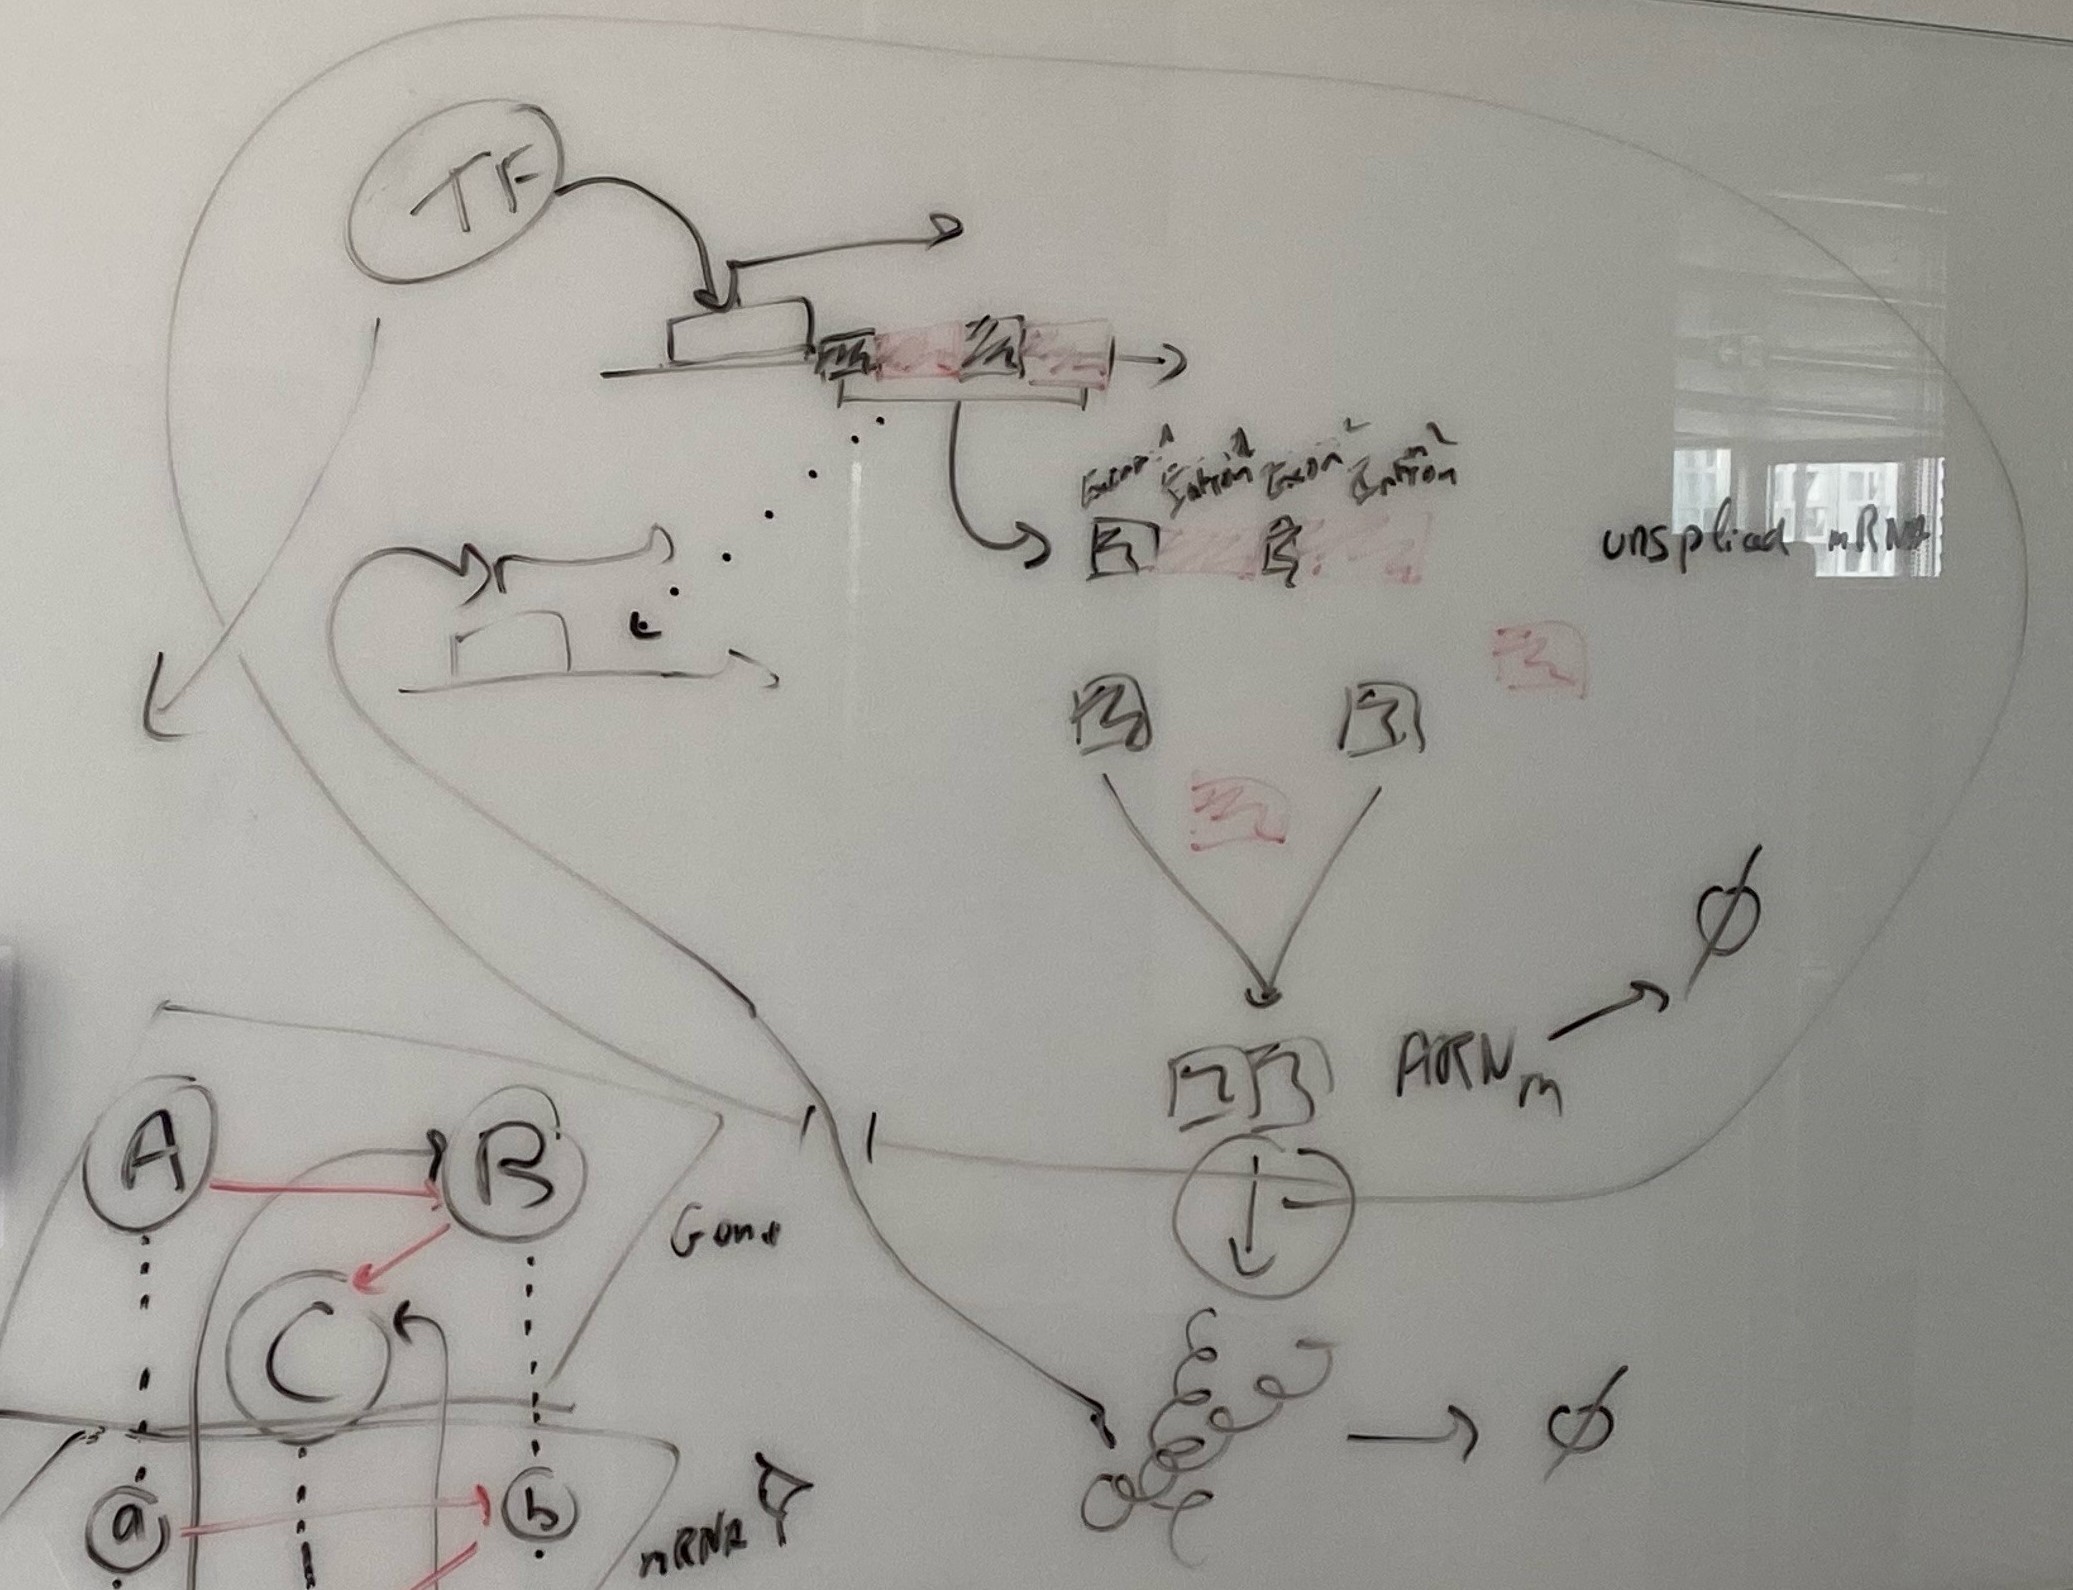 TF
Exon 1 Intron 1 Exon 2 Intron 2
unspliced mRNA
∅
ARNm
A
B
Gene
C
∅
a
b
mRNA